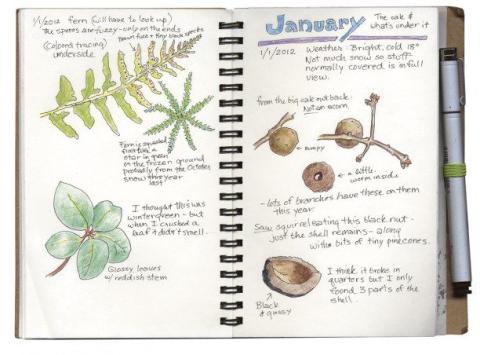 1/1/2012 fern (will have to look up)
The spores are fuzzy - only on the ends
Brown fuzz + tiny black specks
(Colored tracing)
underside
Fern is squashed
into a
star in green
on the frozen ground
probably from the October
snow this year
last
I thought this was
wintergreen - but
when I crushed a
leaf it didn't smell.
Glossy leaves
w/ reddish stem
January
The oak &
what's under it
1/1/2012 Weather - Bright, cold 18°
Not much snow so stuff
normally covered is in full
view.
from the big oak out back.
Not an acorn.
bumpy
a little
worm inside
- lots of branches have these on them
this year.
Saw squirrel eating this black nut -
just the shell remains - along
with bits of tiny pinecones.
I think it broke in
quarters but I only
found 3 parts of the
shell.
Black
&